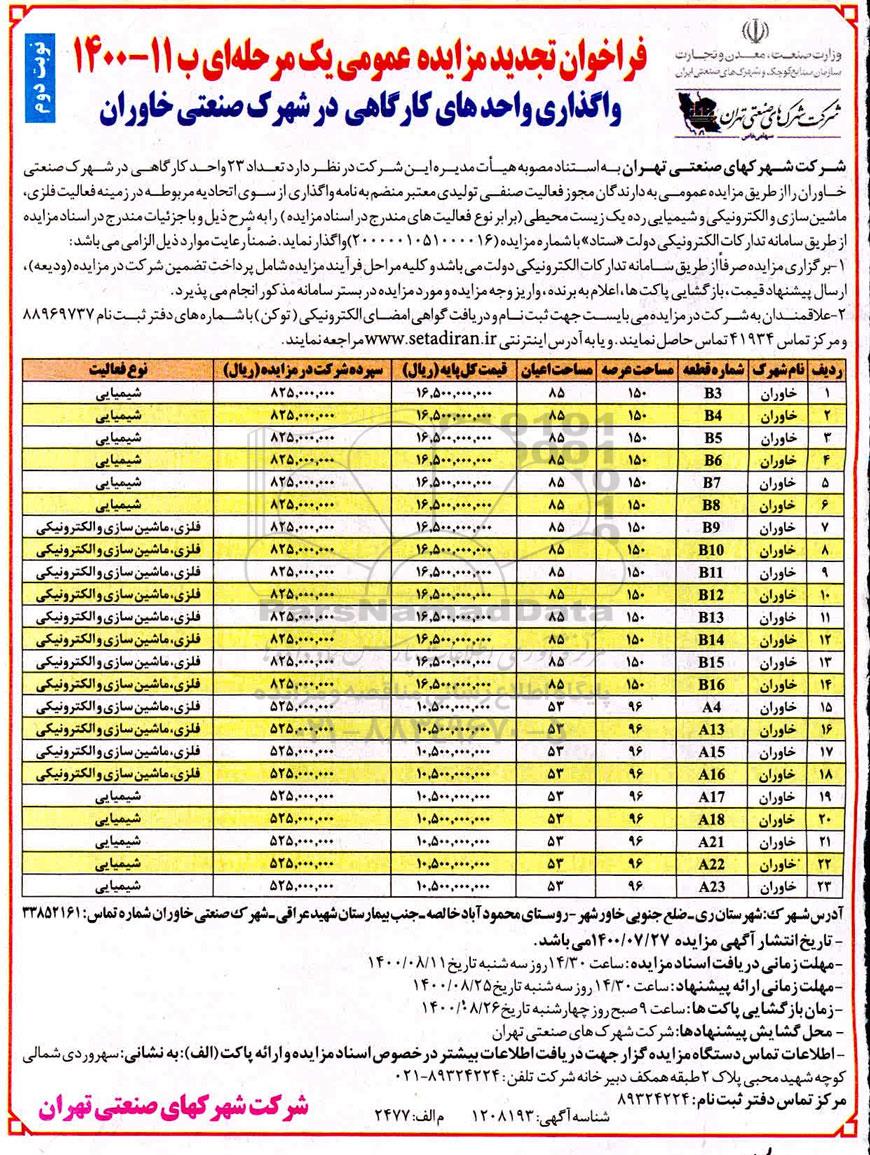 وزارت صنعت، معدن و تجارت
سازمان صنایع کوچک و شهرکهای صنعتی ایران
شرکت شهرک های صنعتی تهران
سهامی خاص
نوبت دوم
فراخوان تجدید مزایده عمومی یک مرحله‌ای ب ۱۱-۱۴۰۰
واگذاری واحدهای کارگاهی در شهرک صنعتی خاوران
شرکت شهرکهای صنعتی تهران به استناد مصوبه هیأت مدیره این شرکت در نظر دارد تعداد ۲۳ واحد کارگاهی در شهرک صنعتی
خاوران را از طریق مزایده عمومی به دارندگان مجوز فعالیت صنفی تولیدی معتبر منضم به نامه واگذاری از سوی اتحادیه مربوطه در زمینه فعالیت فلزی،
ماشین سازی و الکترونیکی و شیمیایی رده یک زیست محیطی (برابر نوع فعالیت های مندرج در اسناد مزایده) را به شرح ذیل و با جزئیات مندرج در اسناد مزایده
از طریق سامانه تدارکات الکترونیکی دولت «ستاد» با شماره مزایده (۲۰۰۰۰۰۱۰۵۱۰۰۰۰۱۶) واگذار نماید. ضمناً رعایت موارد ذیل الزامی می باشد:
۱-برگزاری مزایده صرفاً از طریق سامانه تدارکات الکترونیکی دولت می باشد و کلیه مراحل فرآیند مزایده شامل پرداخت تضمین شرکت در مزایده (ودیعه)،
ارسال پیشنهاد قیمت، بازگشایی پاکت ها، اعلام به برنده، واریز وجه مزایده و مورد مزایده در بستر سامانه مذکور انجام می پذیرد.
۲-علاقمندان به شرکت در مزایده می بایست جهت ثبت نام و دریافت گواهی امضای الکترونیکی (توکن) با شماره های دفتر ثبت نام ۸۸۹۶۹۷۳۷
و مرکز تماس ۴۱۹۳۴ تماس حاصل نمایند. و یا به آدرس اینترنتی www.setadiran.ir مراجعه نمایند.
ردیف نام شهرک شماره قطعه مساحت عرصه مساحت اعیان قیمت کل پایه (ریال) سپرده شرکت در مزایده (ریال) نوع فعالیت
۱ خاوران B3 ۱۵۰ ۸۵ ۱۶,۵۰۰,۰۰۰,۰۰۰ ۸۲۵,۰۰۰,۰۰۰ شیمیایی
۲ خاوران B4 ۱۵۰ ۸۵ ۱۶,۵۰۰,۰۰۰,۰۰۰ ۸۲۵,۰۰۰,۰۰۰ شیمیایی
۳ خاوران B5 ۱۵۰ ۸۵ ۱۶,۵۰۰,۰۰۰,۰۰۰ ۸۲۵,۰۰۰,۰۰۰ شیمیایی
۴ خاوران B6 ۱۵۰ ۸۵ ۱۶,۵۰۰,۰۰۰,۰۰۰ ۸۲۵,۰۰۰,۰۰۰ شیمیایی
۵ خاوران B7 ۱۵۰ ۸۵ ۱۶,۵۰۰,۰۰۰,۰۰۰ ۸۲۵,۰۰۰,۰۰۰ شیمیایی
۶ خاوران B8 ۱۵۰ ۸۵ ۱۶,۵۰۰,۰۰۰,۰۰۰ ۸۲۵,۰۰۰,۰۰۰ شیمیایی
۷ خاوران B9 ۱۵۰ ۸۵ ۱۶,۵۰۰,۰۰۰,۰۰۰ ۸۲۵,۰۰۰,۰۰۰ فلزی، ماشین سازی و الکترونیکی
۸ خاوران B10 ۱۵۰ ۸۵ ۱۶,۵۰۰,۰۰۰,۰۰۰ ۸۲۵,۰۰۰,۰۰۰ فلزی، ماشین سازی و الکترونیکی
۹ خاوران B11 ۱۵۰ ۸۵ ۱۶,۵۰۰,۰۰۰,۰۰۰ ۸۲۵,۰۰۰,۰۰۰ فلزی، ماشین سازی و الکترونیکی
۱۰ خاوران B12 ۱۵۰ ۸۵ ۱۶,۵۰۰,۰۰۰,۰۰۰ ۸۲۵,۰۰۰,۰۰۰ فلزی، ماشین سازی و الکترونیکی
۱۱ خاوران B13 ۱۵۰ ۸۵ ۱۶,۵۰۰,۰۰۰,۰۰۰ ۸۲۵,۰۰۰,۰۰۰ فلزی، ماشین سازی و الکترونیکی
۱۲ خاوران B14 ۱۵۰ ۸۵ ۱۶,۵۰۰,۰۰۰,۰۰۰ ۸۲۵,۰۰۰,۰۰۰ فلزی، ماشین سازی و الکترونیکی
۱۳ خاوران B15 ۱۵۰ ۸۵ ۱۶,۵۰۰,۰۰۰,۰۰۰ ۸۲۵,۰۰۰,۰۰۰ فلزی، ماشین سازی و الکترونیکی
۱۴ خاوران B16 ۱۵۰ ۸۵ ۱۶,۵۰۰,۰۰۰,۰۰۰ ۸۲۵,۰۰۰,۰۰۰ فلزی، ماشین سازی و الکترونیکی
۱۵ خاوران A4 ۹۶ ۵۳ ۱۰,۵۰۰,۰۰۰,۰۰۰ ۵۲۵,۰۰۰,۰۰۰ فلزی، ماشین سازی و الکترونیکی
۱۶ خاوران A13 ۹۶ ۵۳ ۱۰,۵۰۰,۰۰۰,۰۰۰ ۵۲۵,۰۰۰,۰۰۰ فلزی، ماشین سازی و الکترونیکی
۱۷ خاوران A15 ۹۶ ۵۳ ۱۰,۵۰۰,۰۰۰,۰۰۰ ۵۲۵,۰۰۰,۰۰۰ فلزی، ماشین سازی و الکترونیکی
۱۸ خاوران A16 ۹۶ ۵۳ ۱۰,۵۰۰,۰۰۰,۰۰۰ ۵۲۵,۰۰۰,۰۰۰ فلزی، ماشین سازی و الکترونیکی
۱۹ خاوران A17 ۹۶ ۵۳ ۱۰,۵۰۰,۰۰۰,۰۰۰ ۵۲۵,۰۰۰,۰۰۰ شیمیایی
۲۰ خاوران A18 ۹۶ ۵۳ ۱۰,۵۰۰,۰۰۰,۰۰۰ ۵۲۵,۰۰۰,۰۰۰ شیمیایی
۲۱ خاوران A21 ۹۶ ۵۳ ۱۰,۵۰۰,۰۰۰,۰۰۰ ۵۲۵,۰۰۰,۰۰۰ شیمیایی
۲۲ خاوران A22 ۹۶ ۵۳ ۱۰,۵۰۰,۰۰۰,۰۰۰ ۵۲۵,۰۰۰,۰۰۰ شیمیایی
۲۳ خاوران A23 ۹۶ ۵۳ ۱۰,۵۰۰,۰۰۰,۰۰۰ ۵۲۵,۰۰۰,۰۰۰ شیمیایی
ParsNamadData
آدرس شهرک: شهرستان ری - ضلع جنوبی خاورشهر - روستای محمودآباد خالصه - جنب بیمارستان شهید عراقی - شهرک صنعتی خاوران شماره تماس: ۳۳۸۵۲۱۶۱
- تاریخ انتشار آگهی مزایده ۱۴۰۰/۰۷/۲۷ می باشد.
-مهلت زمانی دریافت اسناد مزایده: ساعت ۱۴/۳۰ روز سه شنبه تاریخ ۱۴۰۰/۰۸/۱۱
-مهلت زمانی ارائه پیشنهاد: ساعت ۱۴/۳۰ روز سه شنبه تاریخ ۱۴۰۰/۰۸/۲۵
-زمان بازگشایی پاکت ها: ساعت ۹ صبح روز چهارشنبه تاریخ ۱۴۰۰/۰۸/۲۶
- محل گشایش پیشنهادها: شرکت شهرک های صنعتی تهران
-اطلاعات تماس دستگاه مزایده گزار جهت دریافت اطلاعات بیشتر در خصوص اسناد مزایده و ارائه پاکت (الف): به نشانی: سهروردی شمالی
کوچه شهید محبی پلاک ۲ طبقه همکف دبیرخانه شرکت تلفن: ۸۹۳۲۴۲۲۴-۰۲۱
مرکز تماس دفتر ثبت نام: ۸۹۳۲۴۲۲۴
شناسه آگهی: ۱۲۰۸۱۹۳ م الف: ۲۴۷۷
شرکت شهرکهای صنعتی تهران